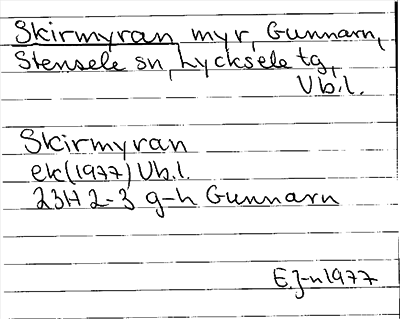 Skirmyran, myr, Gunnarn,
Stensele sn, Lycksele tg,
Vb.l.
Skirmyran
ek (1977) Vb.l.
23H 2-3 g-h Gunnarn
E. J-n 1977